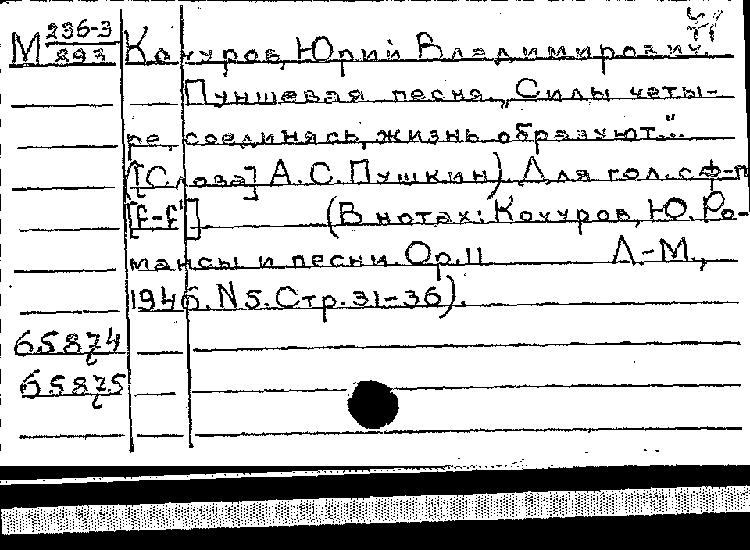 М 236-3/893 Кочуров, Юрий Владимирович.
Пуншевая песня. „Силы четы-
ре, соединясь, жизнь образуют..."
([Слова] А.С. Пушкин). Для гол. с ф-п
[f-f'].          (В нотах: Кочуров, Ю. Ро-
мансы и песни. Ор. 11          Л.-М.,
1946. N5. Стр. 31-36).
65874
65875